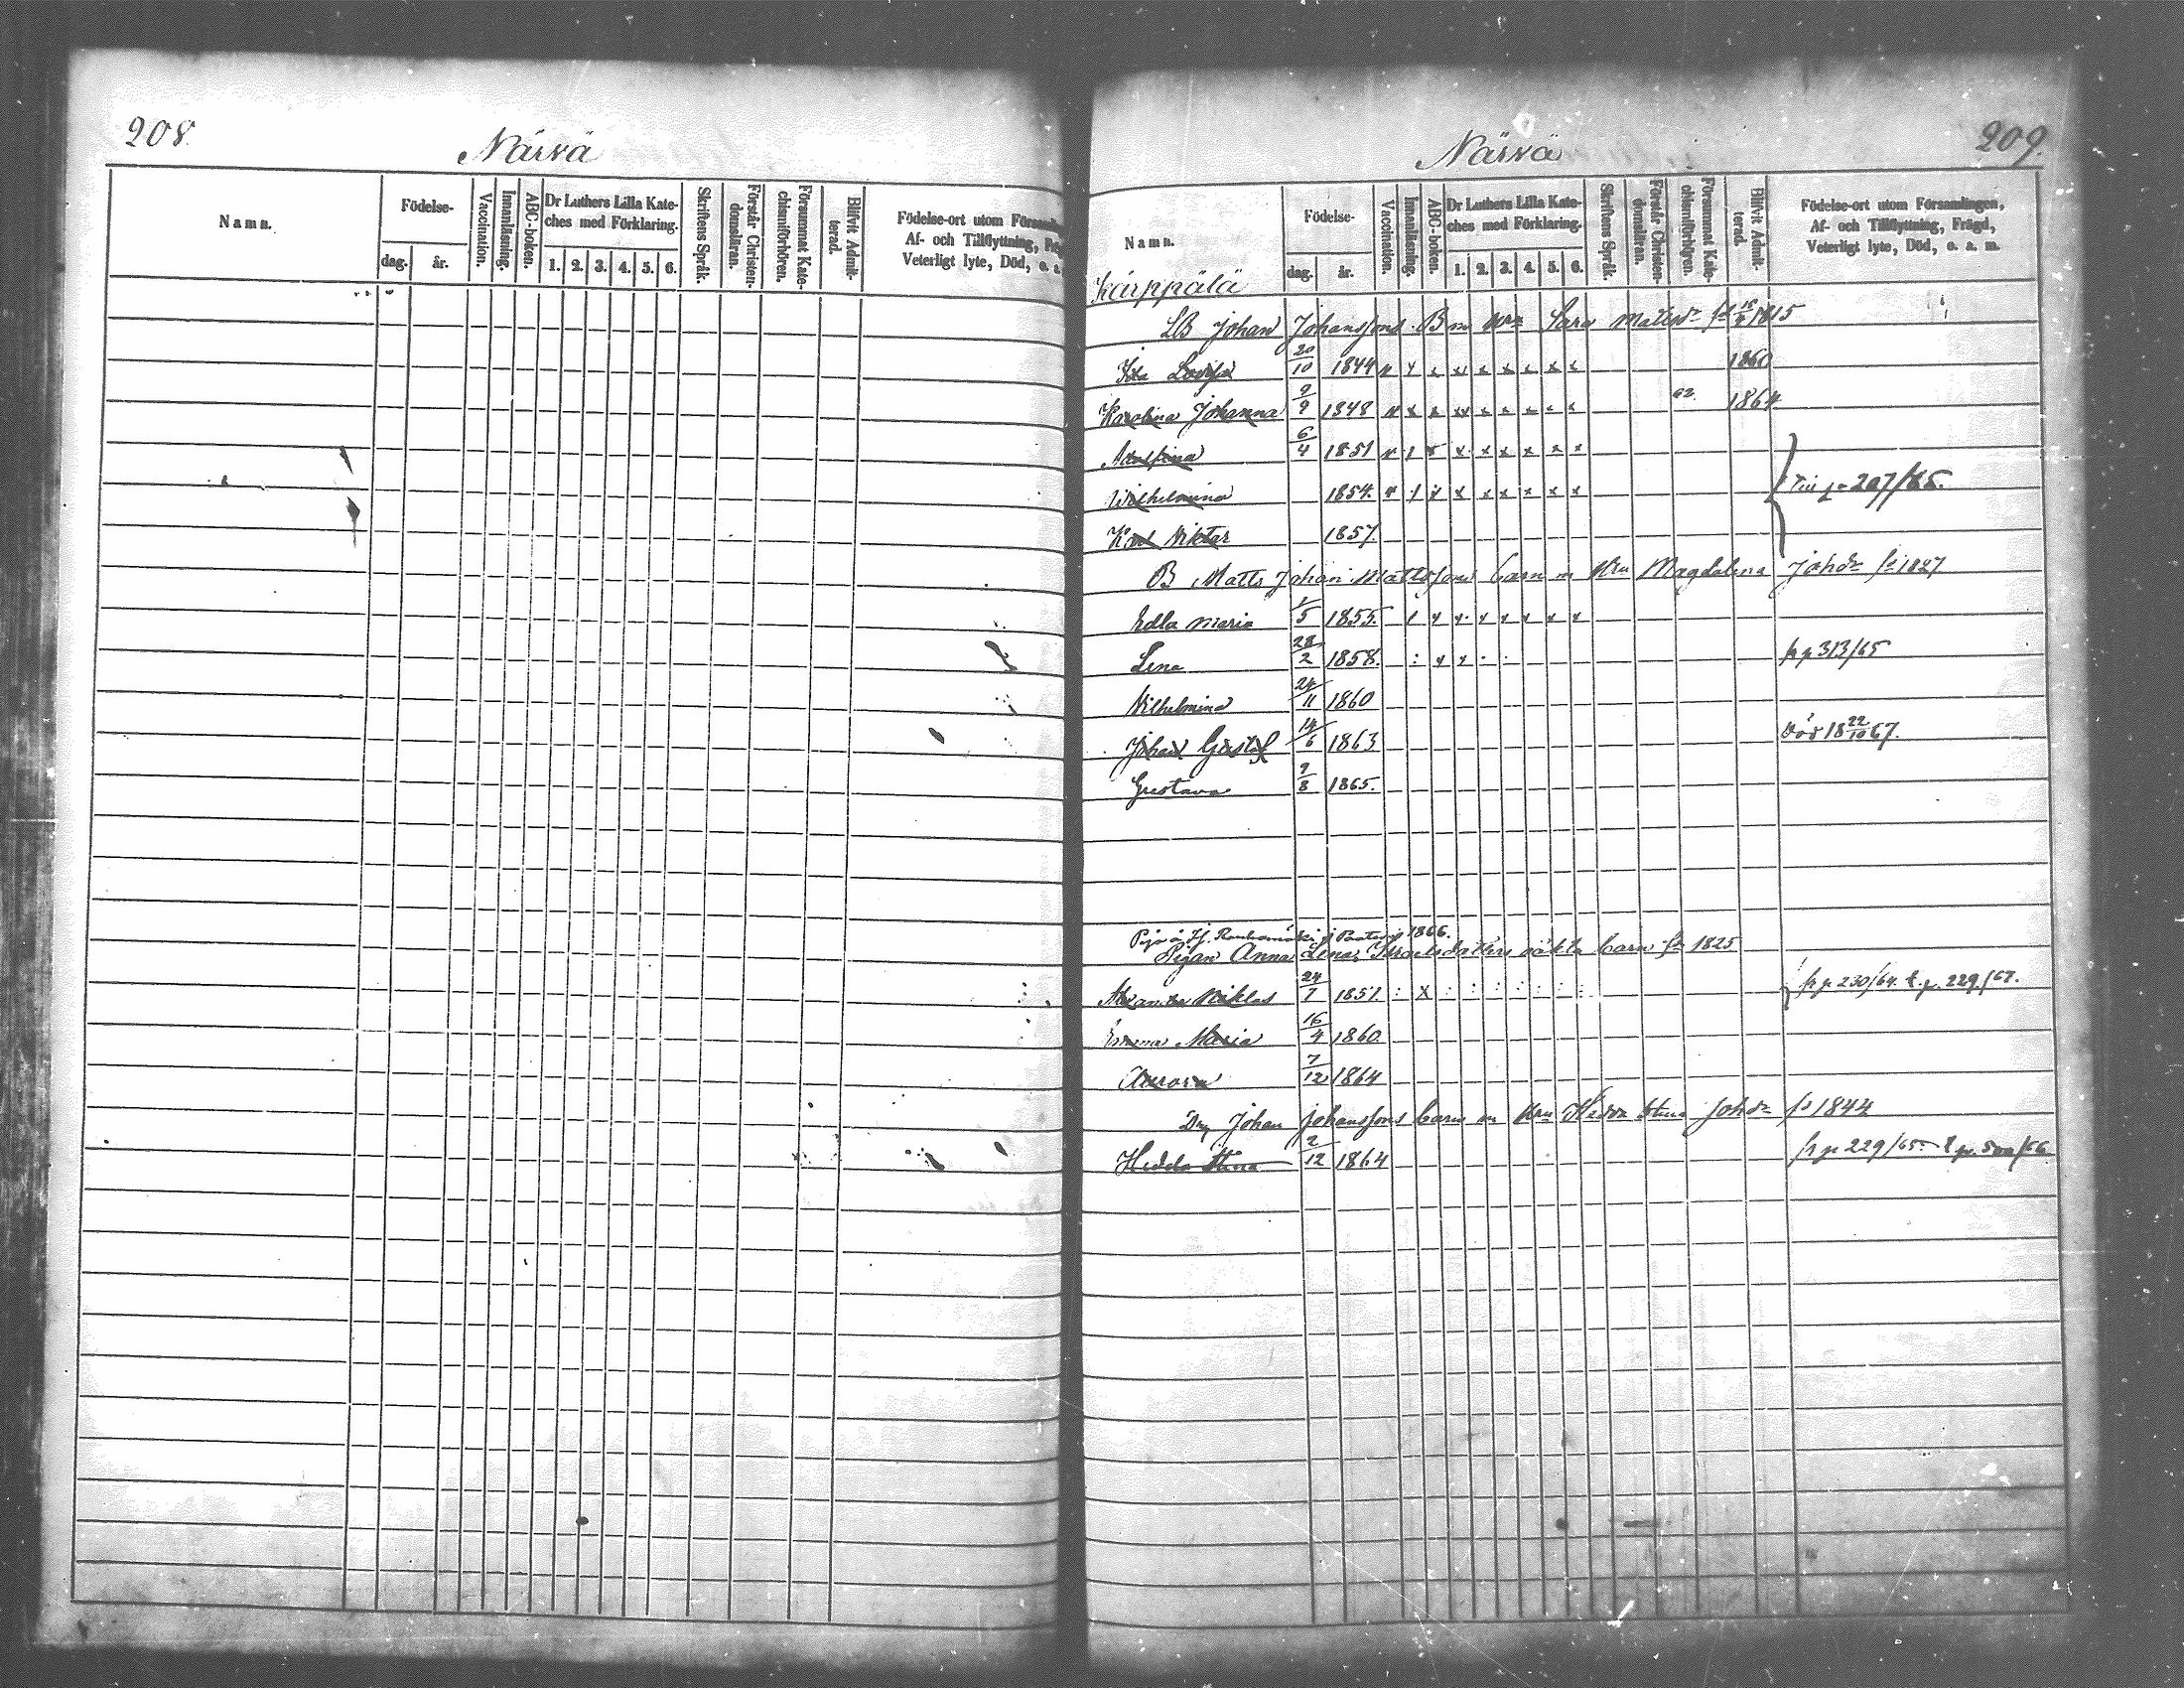 208.
Närvä
Namn.
Födelse-
dag.
år.
Vaccination.
Innanläsning.
ABC-boken.
Dr Luthers Lilla Kate-
ches med Förklaring.
1. 2. 3. 4. 5. 6.
Skriftens Språk.
Förstår Christen-
domsläran.
Försummat Kate-
chismiförhören.
Blifvit Admit-
terad.
Födelse-ort utom Försam
Af- och Tillflyttning,
Veterligt lyte, Död, o. a.
209.
Närvä
Namn.
Födelse-
dag.
år.
Vaccination.
Innanläsning.
ABC-boken.
Dr Luthers Lilla Kate-
ches med Förklaring.
1. 2. 3. 4. 5. 6.
Skriftens Språk.
Förstår Christen-
domsläran.
Försummat Kate-
chismiförhören.
Blifvit Admit-
terad.
Födelse-ort utom Församlingen,
Af- och Tillflyttning, Frägd,
Veterligt lyte, Död, o. a. m.
Kärppälä
LB Johan Johanssons B m Hru Sara Matsdr 1815
Ida Lovisa 20/10 1844 1860
Karolina Johanna 9/9 1848 62 1864
Adolfina 6/4 1851
Wilhelmina 1854 p 207/65.
Karl Viktor 1857.
B Matts Johan Mattssons barn m Hru Magdalena Johdr 1827
Edla Maria 1/5 1855.
Lena 28/2 1858. fr p 313/65
Vilhelmina 24/11 1860
Johan Gustaf 14/6 1863 död 18 22/10 67.
Gustava 9/8 1865.
1866.
Pigan Anna Lena Israelsdotters oäkta barn 1825
Alexander Niklas 24/7 1857 fr p. 230/64. t. p. 229/67.
Emma Maria 16/4 1860.
Aurora 7/12 1864
Johan Johanssons barn m Hru Hedda Stina Johdr 1844
Hedda Stina 2/12 1864 fr p 229/65